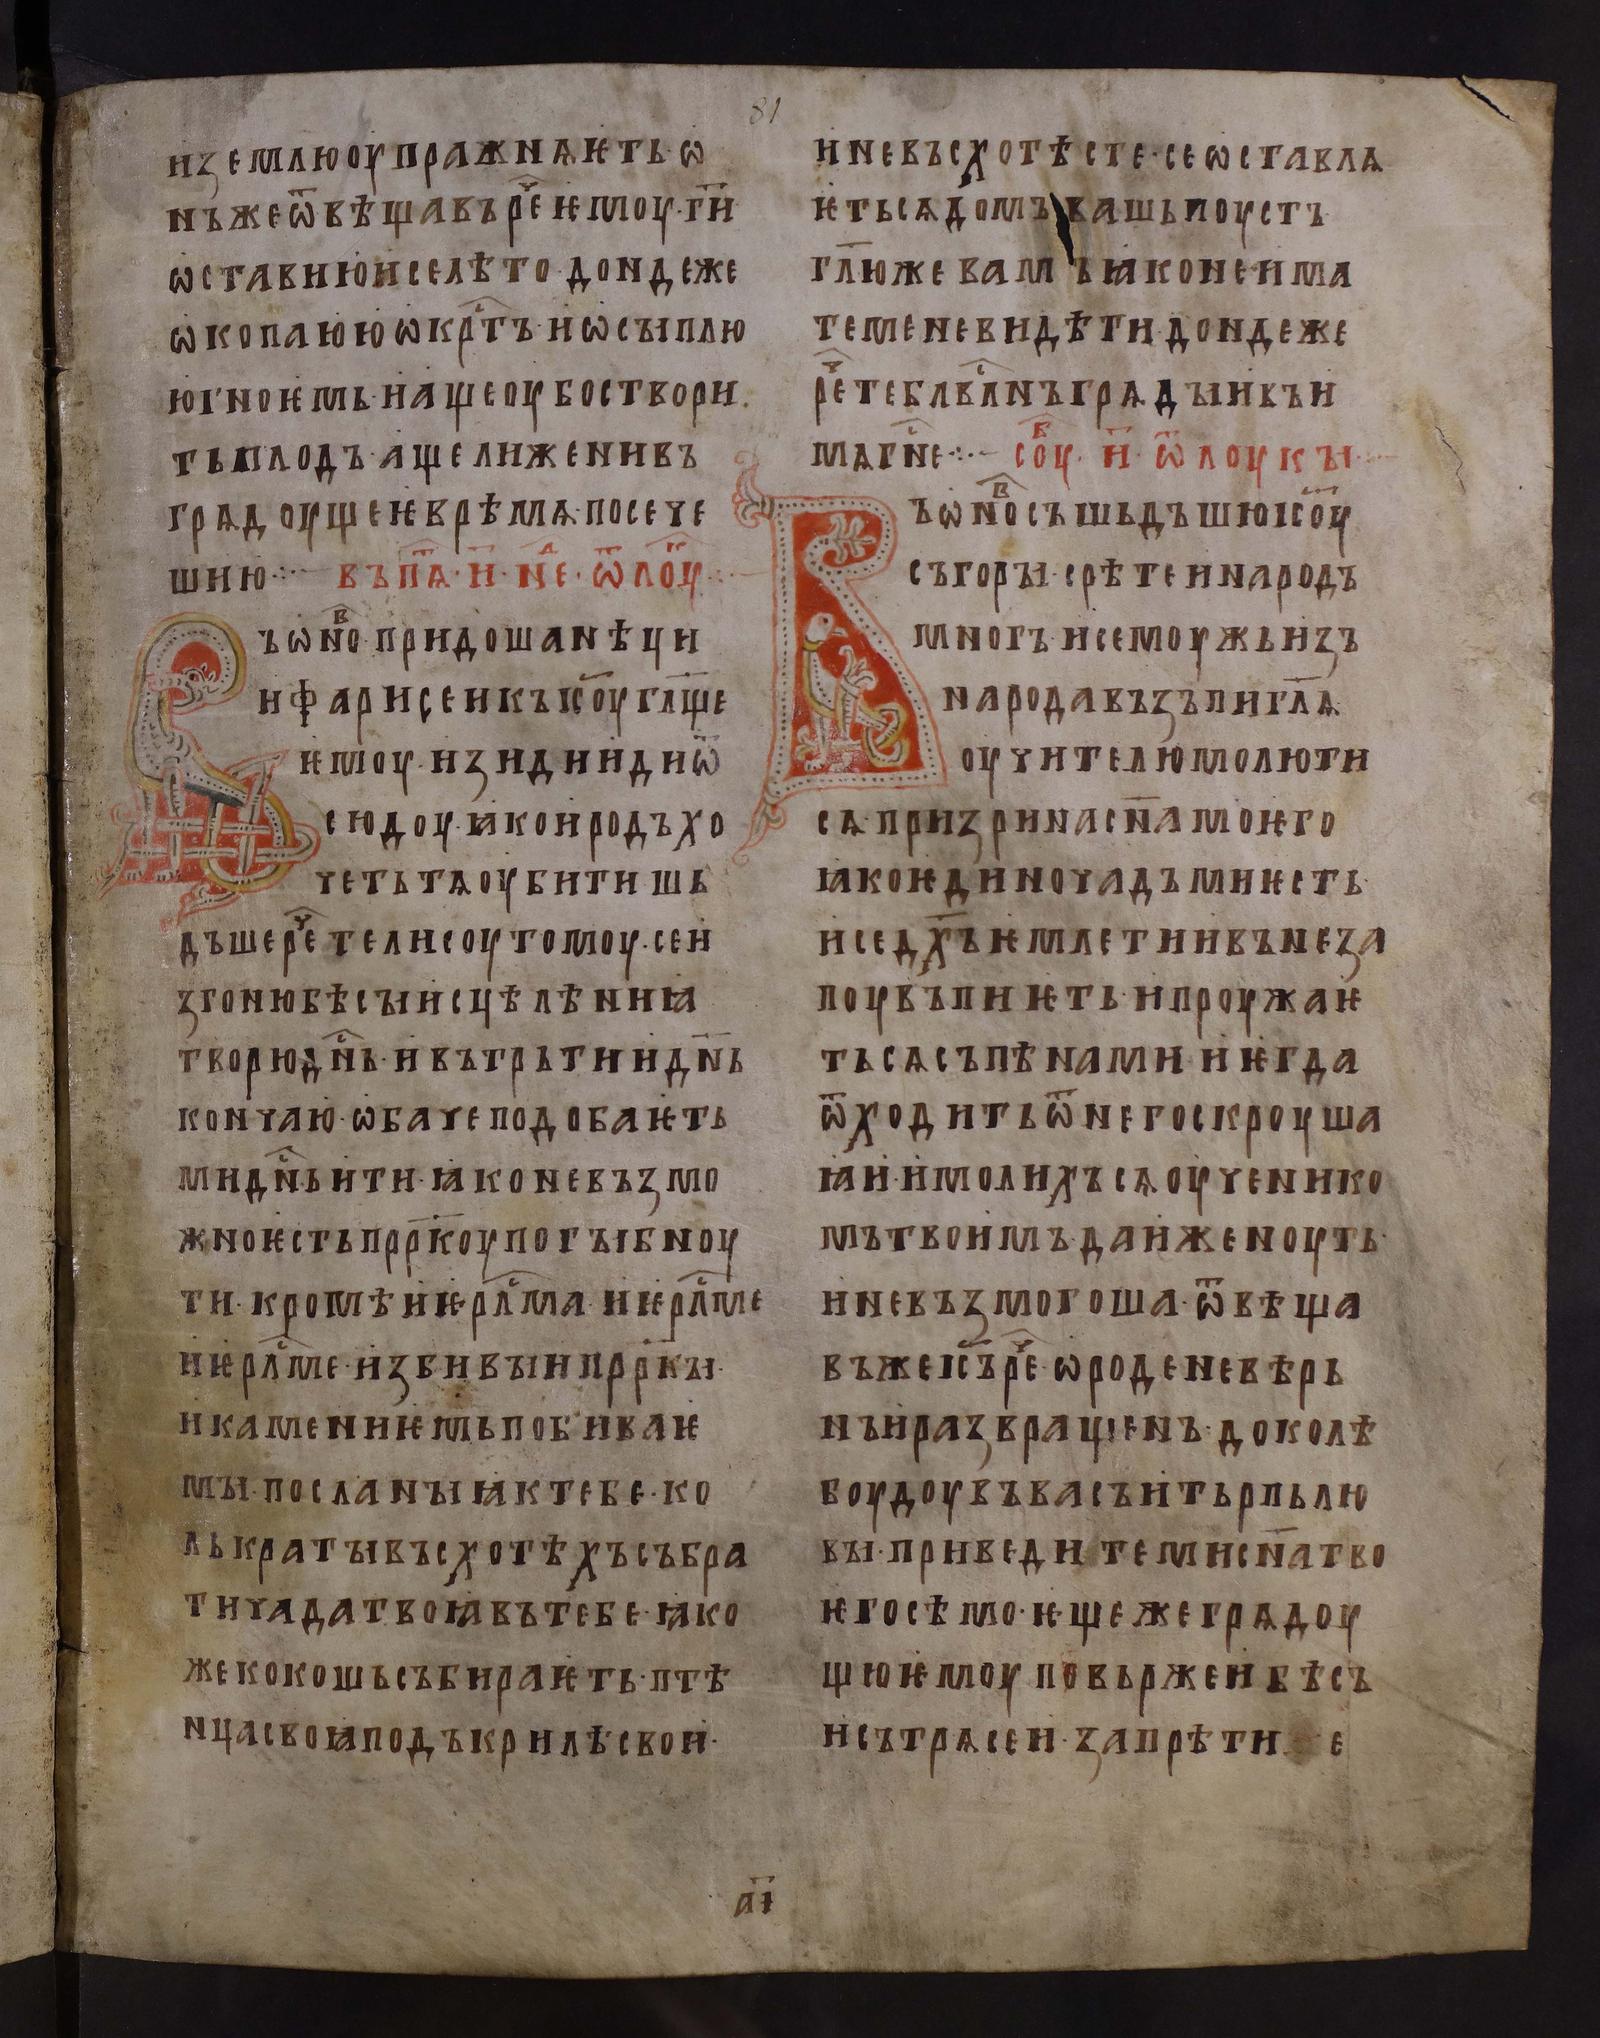 81
и землю оупражнꙗѥть· ѡ
нъ же ѿвѣщавъ рⷱ҇е ѥмоу· г҃и
ѡстави ю и се лѣто дондеже
ѡкопаю ю ѡкрⷭ҇тъ· и ѡсыплю
ю гноѥмь· и аще оубо створи
ть плодъ· аще ли же ни въ
грѧдоущеѥ врѣмѧ· посече
ши ю·:· въ пѧ҃· н҃· нⷣе· ѿ лоуⷦ
ъ ѡнⷡо придоша нѣци
и фарисеи къ іс҃оу гл҃ще
ѥмоу· изиди и иди ѿ
сюдоу· ꙗко иродъ хо
четь тѧ оубити шь
дъше рⷱ҇ете лисоу томоу· се и
згоню бѣсы и сцѣлѣниꙗ
творю дн҃ь· и въ трьтии дн҃ь
кончаю· ѡбаче подобаѥть
ми дн҃ь ити· ꙗко невъзмо
жно ѥсть прр҃коу погыбноу
ти· кромѣ иѥрⷭ҇лма· иѥрⷭ҇лме
иѥрⷭ҇лме· избивыи прр҃кы·
и камениѥмь побиваѥ
мы· посланыꙗ к тебе· ко
лькраты въсхотѣхъ събра
ти чада твоꙗ въ тебе· ꙗко
же кокошь събираѥть· птѣ
нца своꙗ подъ крилѣ свои·
и не въсхотѣсте· се ѡставлѧ
ѥть сѧ домъ вашь поустъ
гл҃ю же вамъ ꙗко не има
те мене видѣти· дондеже
рⷱ҇ете блвⷭ҇лнъ грѧдыи въ и
мѧ гн҃е·:· соуⷡ· н҃· ѿ лоукы
ъ ѡнⷡо съшьдъшю іс҃оу
съ горы· срѣте и народъ
многъ· и се моужь изъ
народа възъпи гл҃ѧ
оучителю молю ти
сѧ· призри на сн҃а моѥго
ꙗко ѥдиночадъ ми ѥсть
и се дх҃ъ ѥмлеть и и вънеза
поу въпиѥть· и проужаѥ
ть сѧ съ пѣнами· и ѥгда
ѿходить ѿ него скроуша
ꙗ и· и молихъ сѧ оученико
мъ твоимъ· да ижденоуть
и не възмогоша· ѿвѣща
въ же іс҃ъ рⷱ҇е· ѡ роде невѣрь
нъи развращенъ· доколѣ
боудоу въ васъ и тьрпьлю
вы· приведи те ми сн҃а тво
ѥго сѣмо· ѥще же грѧдоу
щю ѥмоу повьрже и бѣсъ
и сътрѧсе и· запрѣти е
аі